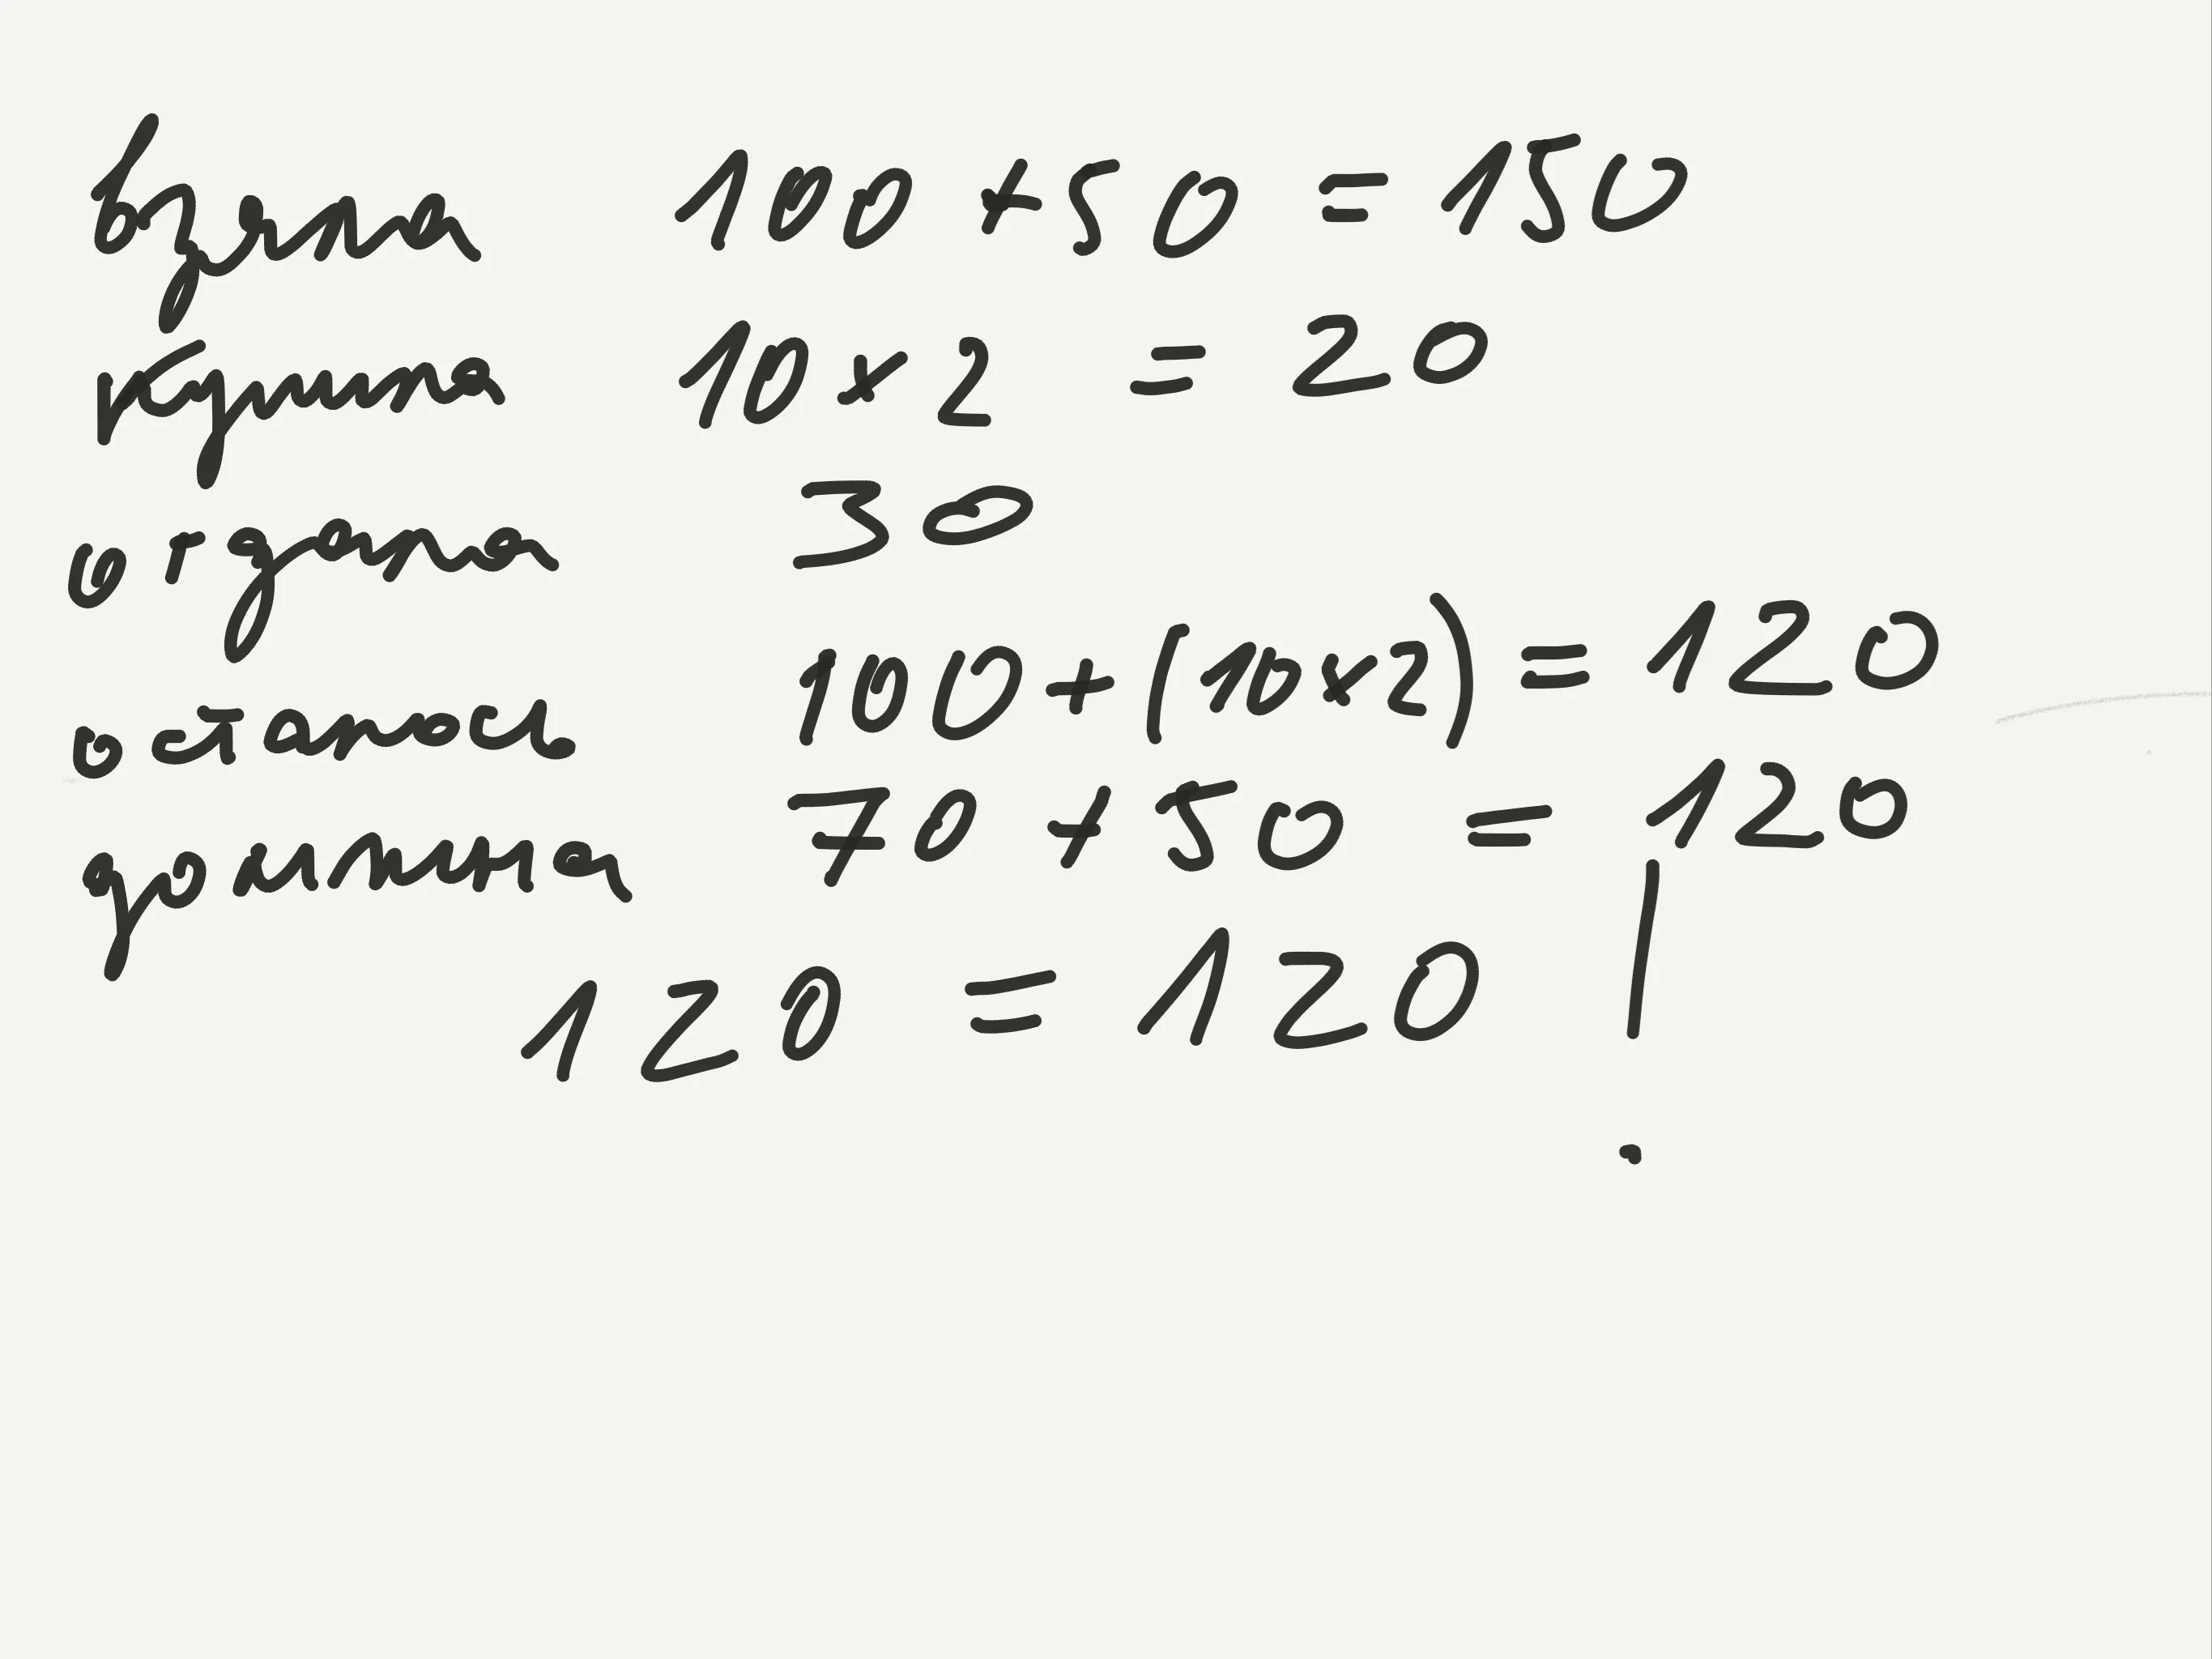 взяла 100 + 50 = 150
купила 10 × 2 = 20
отдала 30
осталось 100 + (10 × 2) = 120
должна 70 + 50 = 120
120 = 120 !